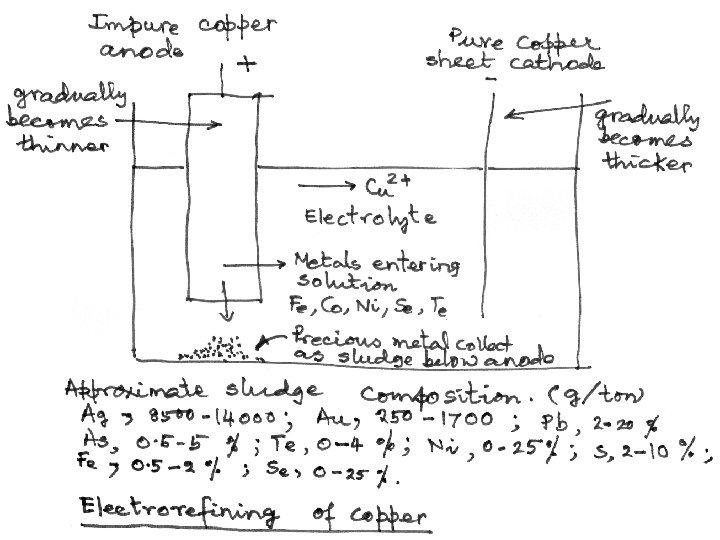 Impure copper
anode
+
Pure copper
sheet cathode
-
gradually
becomes
thinner
gradually
becomes
thicker
Cu2+
Electrolyte
Metals entering
solution
Fe, Co, Ni, Se, Te
Precious metal collect
as sludge below anode
Approximate sludge composition. (g/ton)
Ag, 8500-14000; Au, 250-1700; Pb, 2-20%
As, 0.5-5%; Te, 0-4%; Ni, 0-25%; S, 2-10%;
Fe, 0.5-2%; Se, 0-25%.
Electrorefining of copper